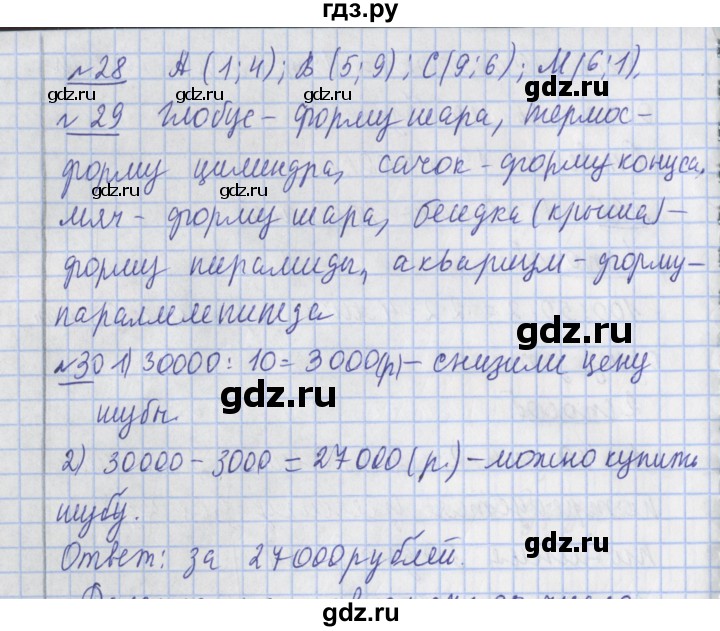 гдз.ру
№28 А (1;4); В (5;9); С(9;6); М(6;1).
№29 Глобус - форму шара, термос -
форму цилиндра, сачок - форму конуса,
мяч - форму шара, беседка (крыша) -
форму пирамиды, аквариум - форму -
параллелепипеда
№30 1) 30000 : 10 = 3000(р) - снизили цену
шубы.
2) 30000 - 3000 = 27000 (р.) - можно купить
шубу.
Ответ: за 27000 рублей.
gdz.ru
gdz.ru
gdz.ru
gdz.ru
gdz.ru
gdz.ru
gdz.ru
gdz.ru
gdz.ru